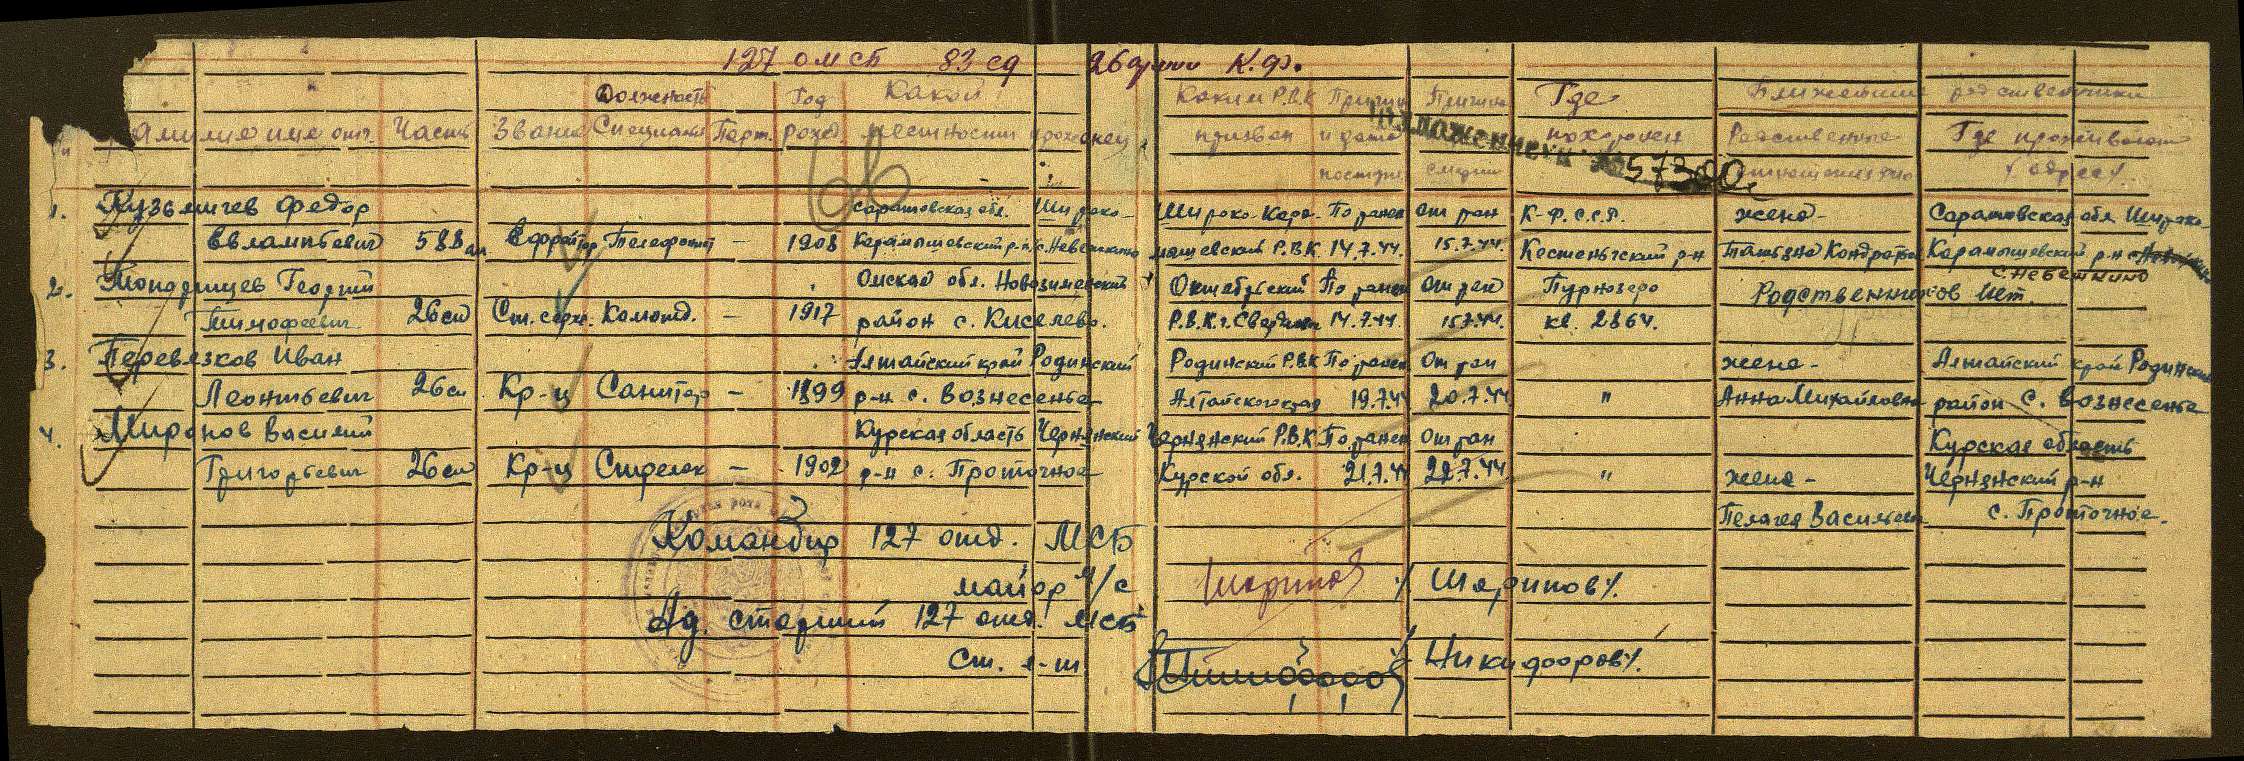 127 ОМСБ 83 сд 26 армии К.Ф.
Должность Год Какой Каким Р.В.К Причин Причина Где Ближайшие родственники
Фамилия имя отч. Часть Звание Специальн Парт. рожд. местности урожанец призван и дата похоронен Родственные Где проживают
поступл. смерти отношения /адрес/.
57300
1. Кузьмичев Федор Саратовская обл. Широко- Широко-Кара- По ранен От ран К-Ф.С.С.Р. жена - Саратовская обл. Широко-
Евлампьевич 588 ап Ефрейтор Телефонист - 1908 Карамышевский р-н с. Невежкино мышевский Р.В.К. 14.7.44. 15.7.44. Кестеньгский р-н Татьяна Кондратьев Карамышевский р-н
с. Невежкино
2. Георгий Омская обл. Новозимовский Октябрьский По ранен От ран Пурнозеро Родственников нет.
Тимофеевич 26 сп Ст. серж. Комотд. - 1917 район с. Киселево. Р.В.К. г. Свердловск 14.7.44. 15.7.44. кв. 2864.
3. Перевязков Иван Алтайский край Родинский Родинский Р.В.К По ранен От ран жена - Алтайский край Родинский
Леонтьевич 26 сп Кр-ц Санитар - 1899 р-н с. Вознесенье Алтайского края 19.7.44 20.7.44 " Анна Михайловна район с. Вознесенье
4. Миронов Василий Курская область Чернянский Чернянский Р.В.К. По ранен От ран Курская область
Григорьевич 26 сп Кр-ц Стрелок - 1902 р-н с. Проточное Курской обл. 21.7.44 22.7.44 " жена - Чернянский р-н
Пелагея Васильевн с. Проточное.
Командир 127 отд. МСБ
майор м/с /Шарипов/.
Ад. старший 127 отд. МСБ
Ст. л-т /Никифоров/.